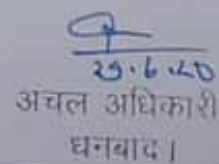 29.6.20
अंचल अधिकारी
धनबाद।